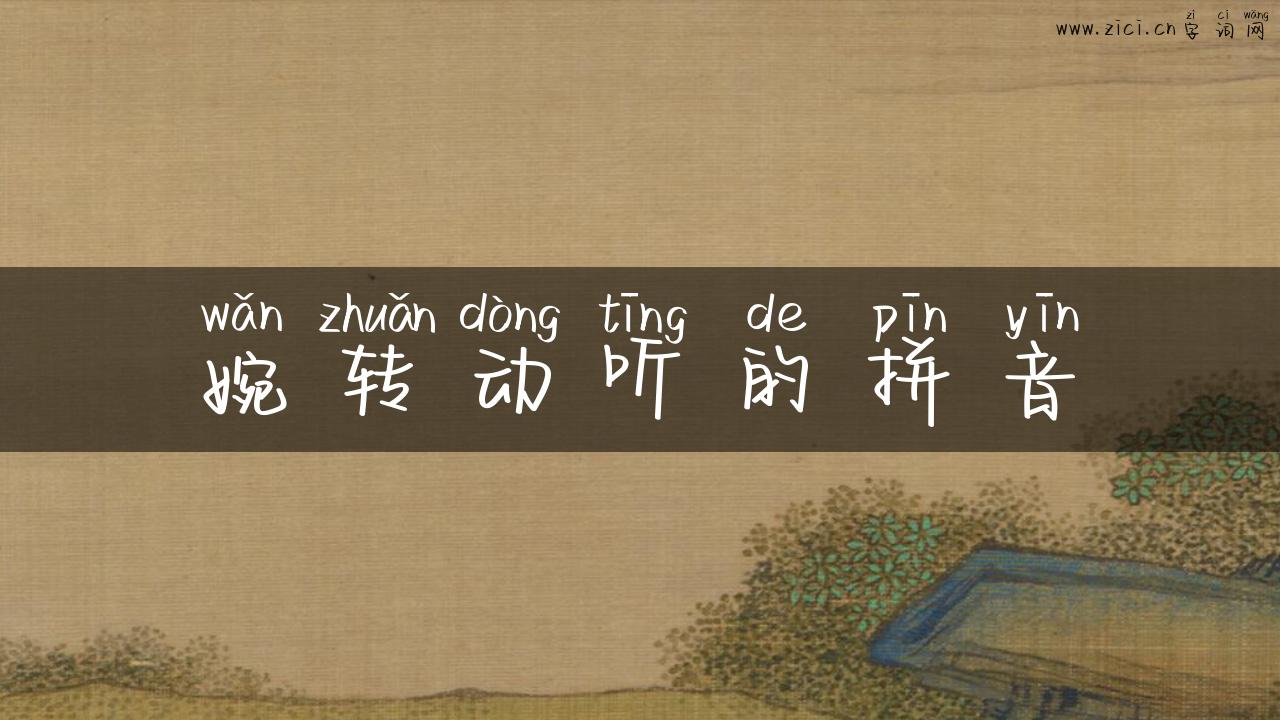 zì cí wǎng
www.zici.cn 字词网
wǎn zhuǎn dòng tīng de pīn yīn
婉转动听的拼音